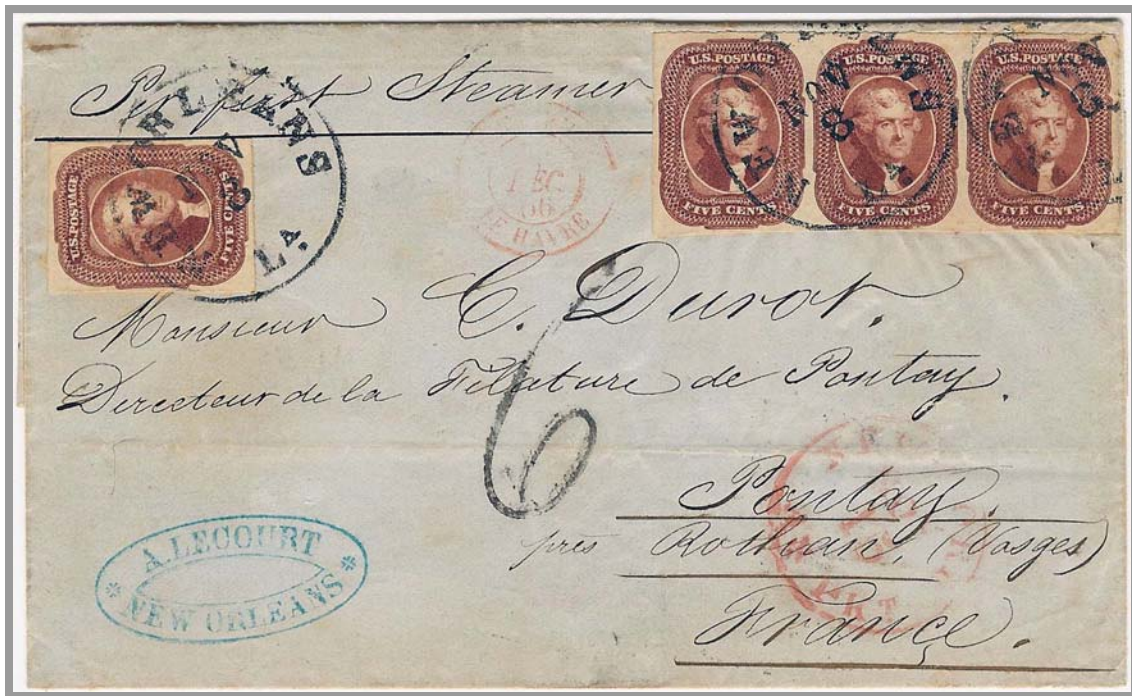 Pr first Steamer
U.S. POSTAGE
FIVE CENTS
U.S. POSTAGE
FIVE CENTS
U.S. POSTAGE
FIVE CENTS
U.S. POSTAGE
FIVE CENTS
NOV
8
LA
LE HAVRE
Monsieur C. Durot.
Directeur de la Filature de Pontay.
6
Pontay.
près Rothian, (Vosges)
France.
A. LECOURT
NEW ORLEANS